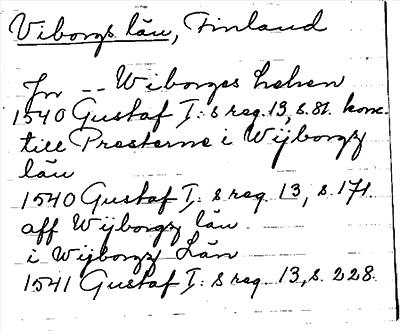 Viborgs län, Finland
Jn -- Wiborges Lehen
1540 Gustaf I:s reg. 13, s. 81. konc.
till Presterne i Wijborgz
län
1540 Gustaf I:s reg 13, s. 171.
aff Wijborgz län
i Wijborgz Län
1541 Gustaf I:s reg. 13, s. 228.